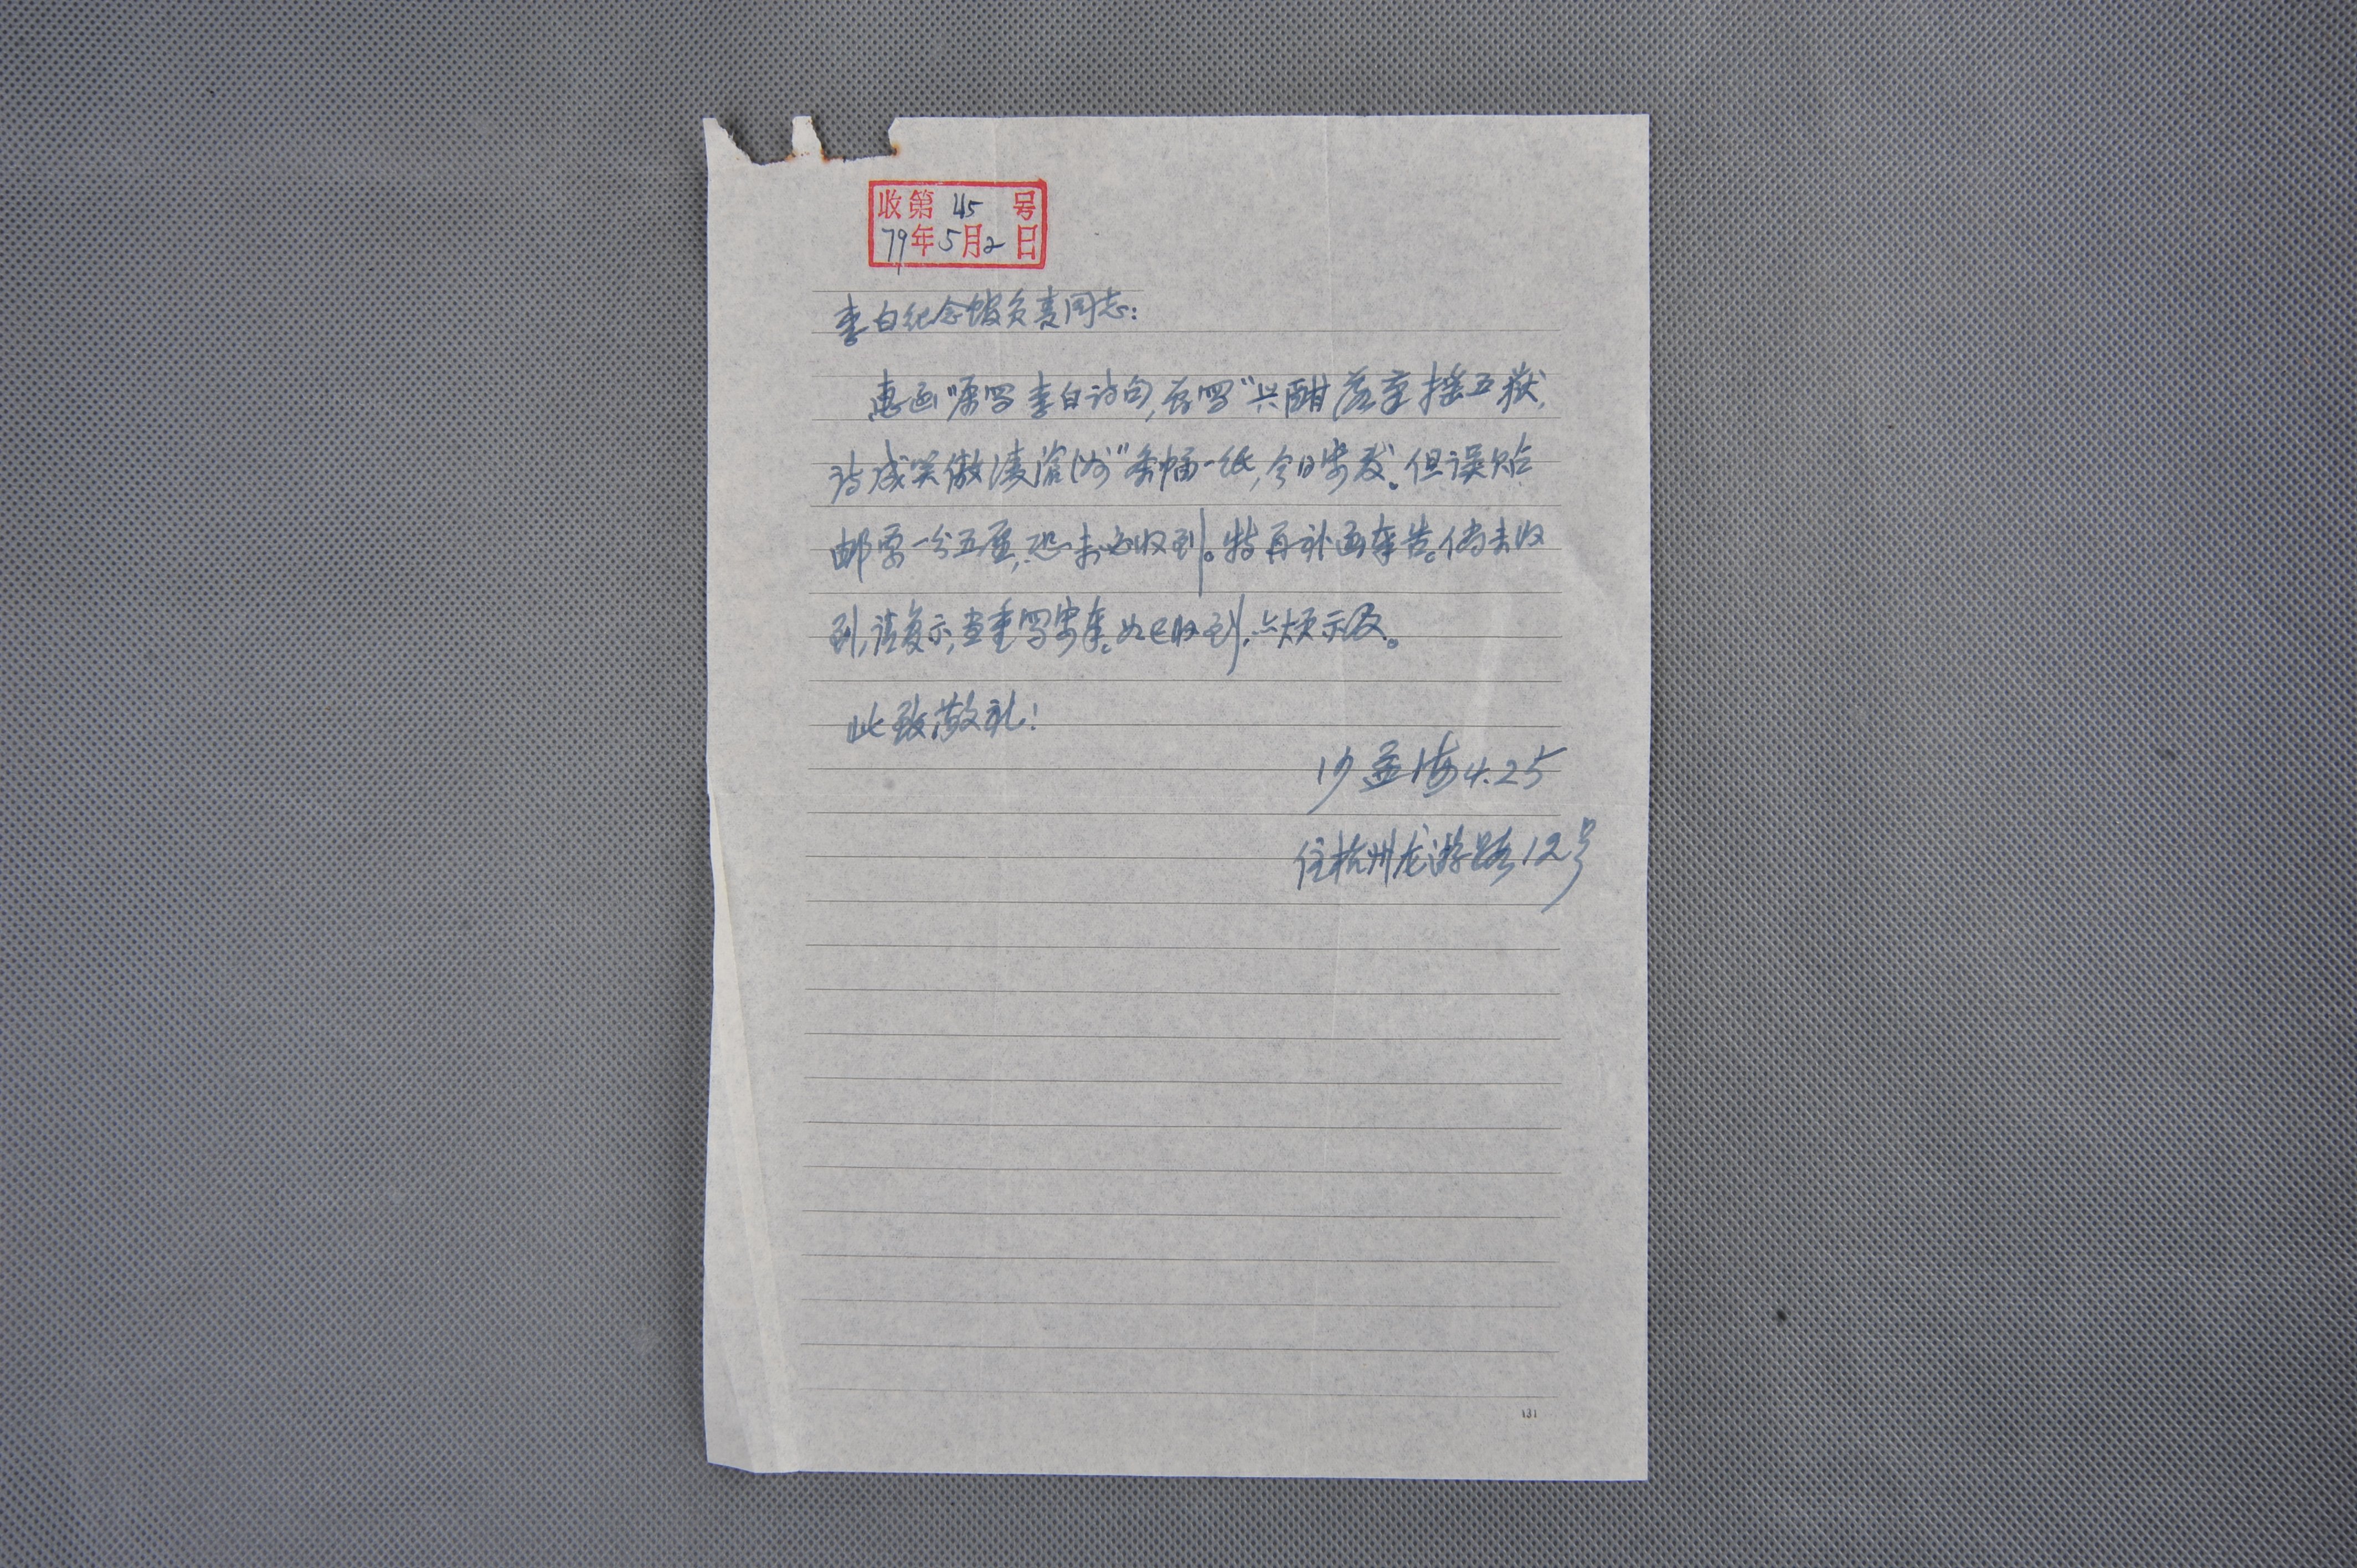 收第45号
79年5月2日
李白纪念馆负责同志：
惠函嘱写李白诗句，前写“兴酣落笔摇五嶽，
诗成笑傲凌沧洲”条幅一纸，今日寄发。但误贴
邮票一分五厘，恐未必收到。特再补函奉告。倘未收
到，请复示，当重写寄奉。如已收到，亦烦示及。
此致敬礼！
沙孟海4.25
住杭州龙游路12号
131